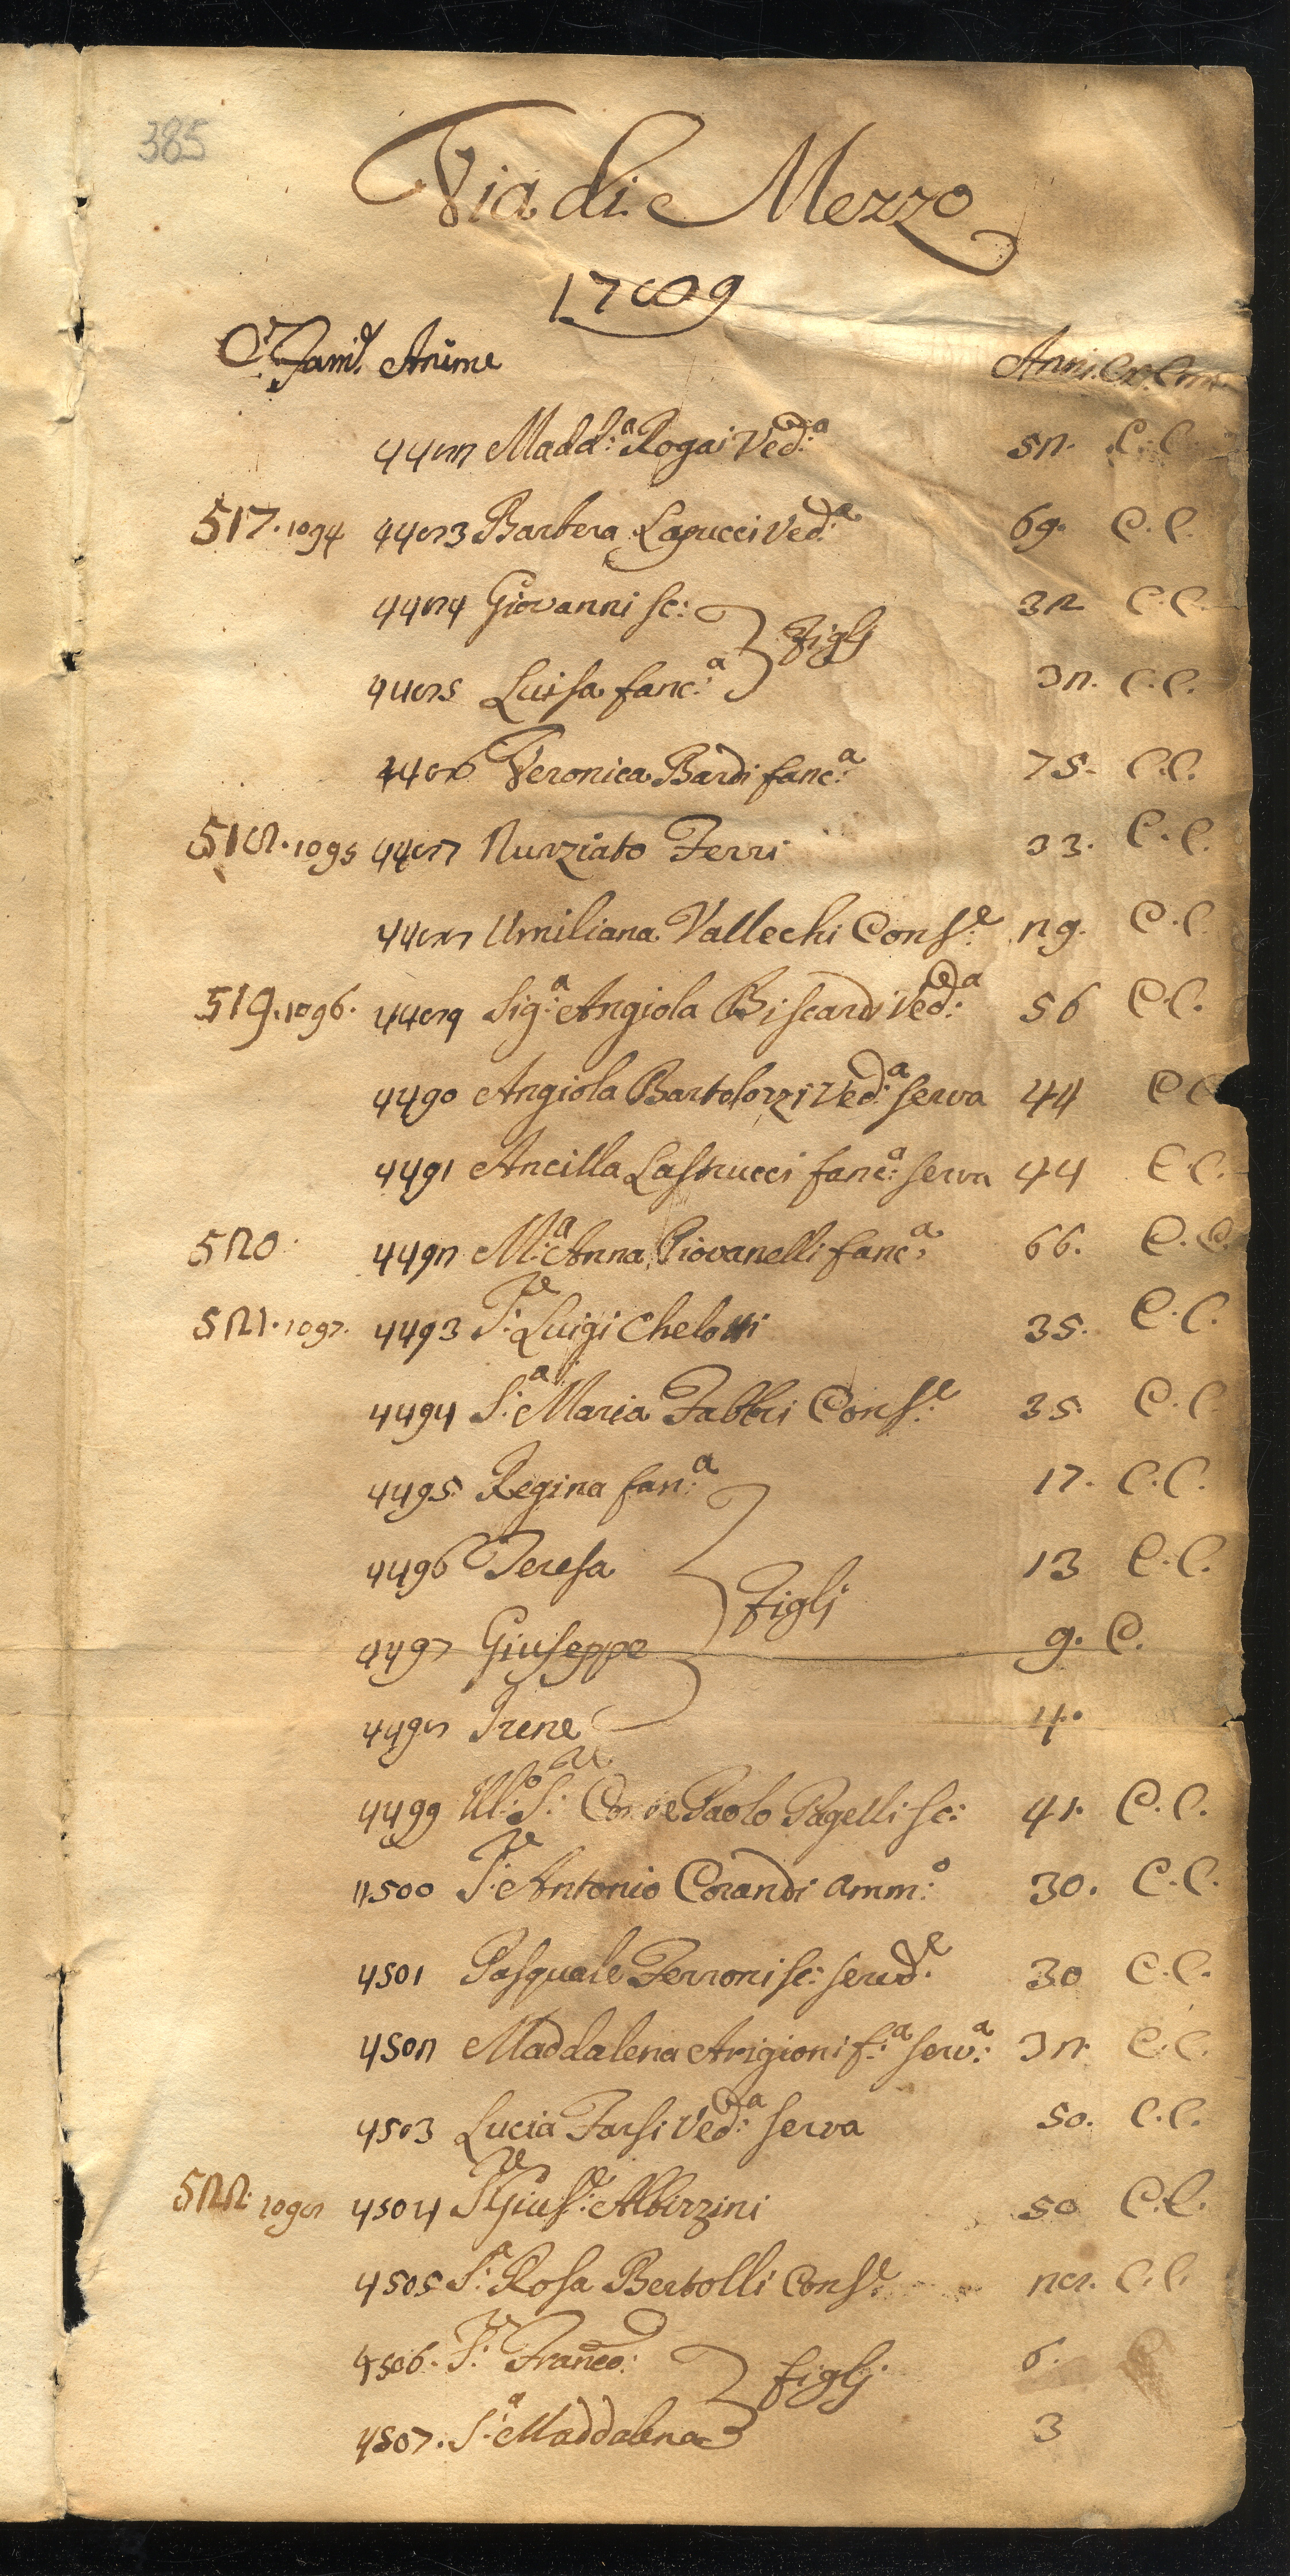 385
Via di Mezzo
1789
Cᵉ Famᵉ. Anime Anni. Cr. Com
4482 Madd:ᵃ Rogai Ved:ᵃ 52. C. C.
517. 1094 4483 Barbera Lapucci Ved:ᵃ 69. C. C.
4484 Giovanni sc: 32 C. C.
Figlj
4485 Luisa fanc:ᵃ 32. C. C.
4486 Veronica Bardi fanc:ᵃ 75. C. C.
518. 1095 4487 Nunziato Ferri 33. C. C.
4488 Umiliana Vallechi Cons:ᵉ 29. C. C.
519. 1096. 4489 Sig:ᵃ Angiola Biscardi Ved:ᵃ 56 C. C.
4490 Angiola Bartolozzi Ved:ᵃ serva 44 C C
4491 Ancilla Lastrucci fanc:ᵃ serva 44 C. C.
520. 4492 M:ᵃ Anna Piovanelli fanc:ᵃ 66. C. C.
521. 1097. 4493 S:ʳᵉ Luigi Chelotti 35. C. C.
4494 S:ᵃ Maria Fabbri Cons:ᵉ 35. C. C.
4495 Regina fan:ᵃ 17. C. C.
4496 Teresa 13 C. C.
Figlj
4497 Giuseppe 9. C.
4498 Irene 4.
4499 Ill:ᵒ S:ʳᵉ Conte Paolo Pagelli sc: 41. C. C.
4500 S:ʳᵉ Antonio Corandi Amm:ᵒ 30. C. C.
4501 Pasquale Ferroni sc: servd:ᵉ 30 C. C.
4502 Maddalena Arigioni f:ᵃ serv:ᵃ 32. C. C.
4503 Lucia Farsi Ved:ᵃ serva 50. C. C.
522. 1098 4504 S:ʳᵉ Gius:ᵉ Albizzini 50 C. C.
4505 S:ᵃ Rosa Bertolli Cons:ᵉ 28. C. C.
4506. S:ʳᵉ Franco: 6.
figlj.
4507. S:ᵃ Maddalena 3